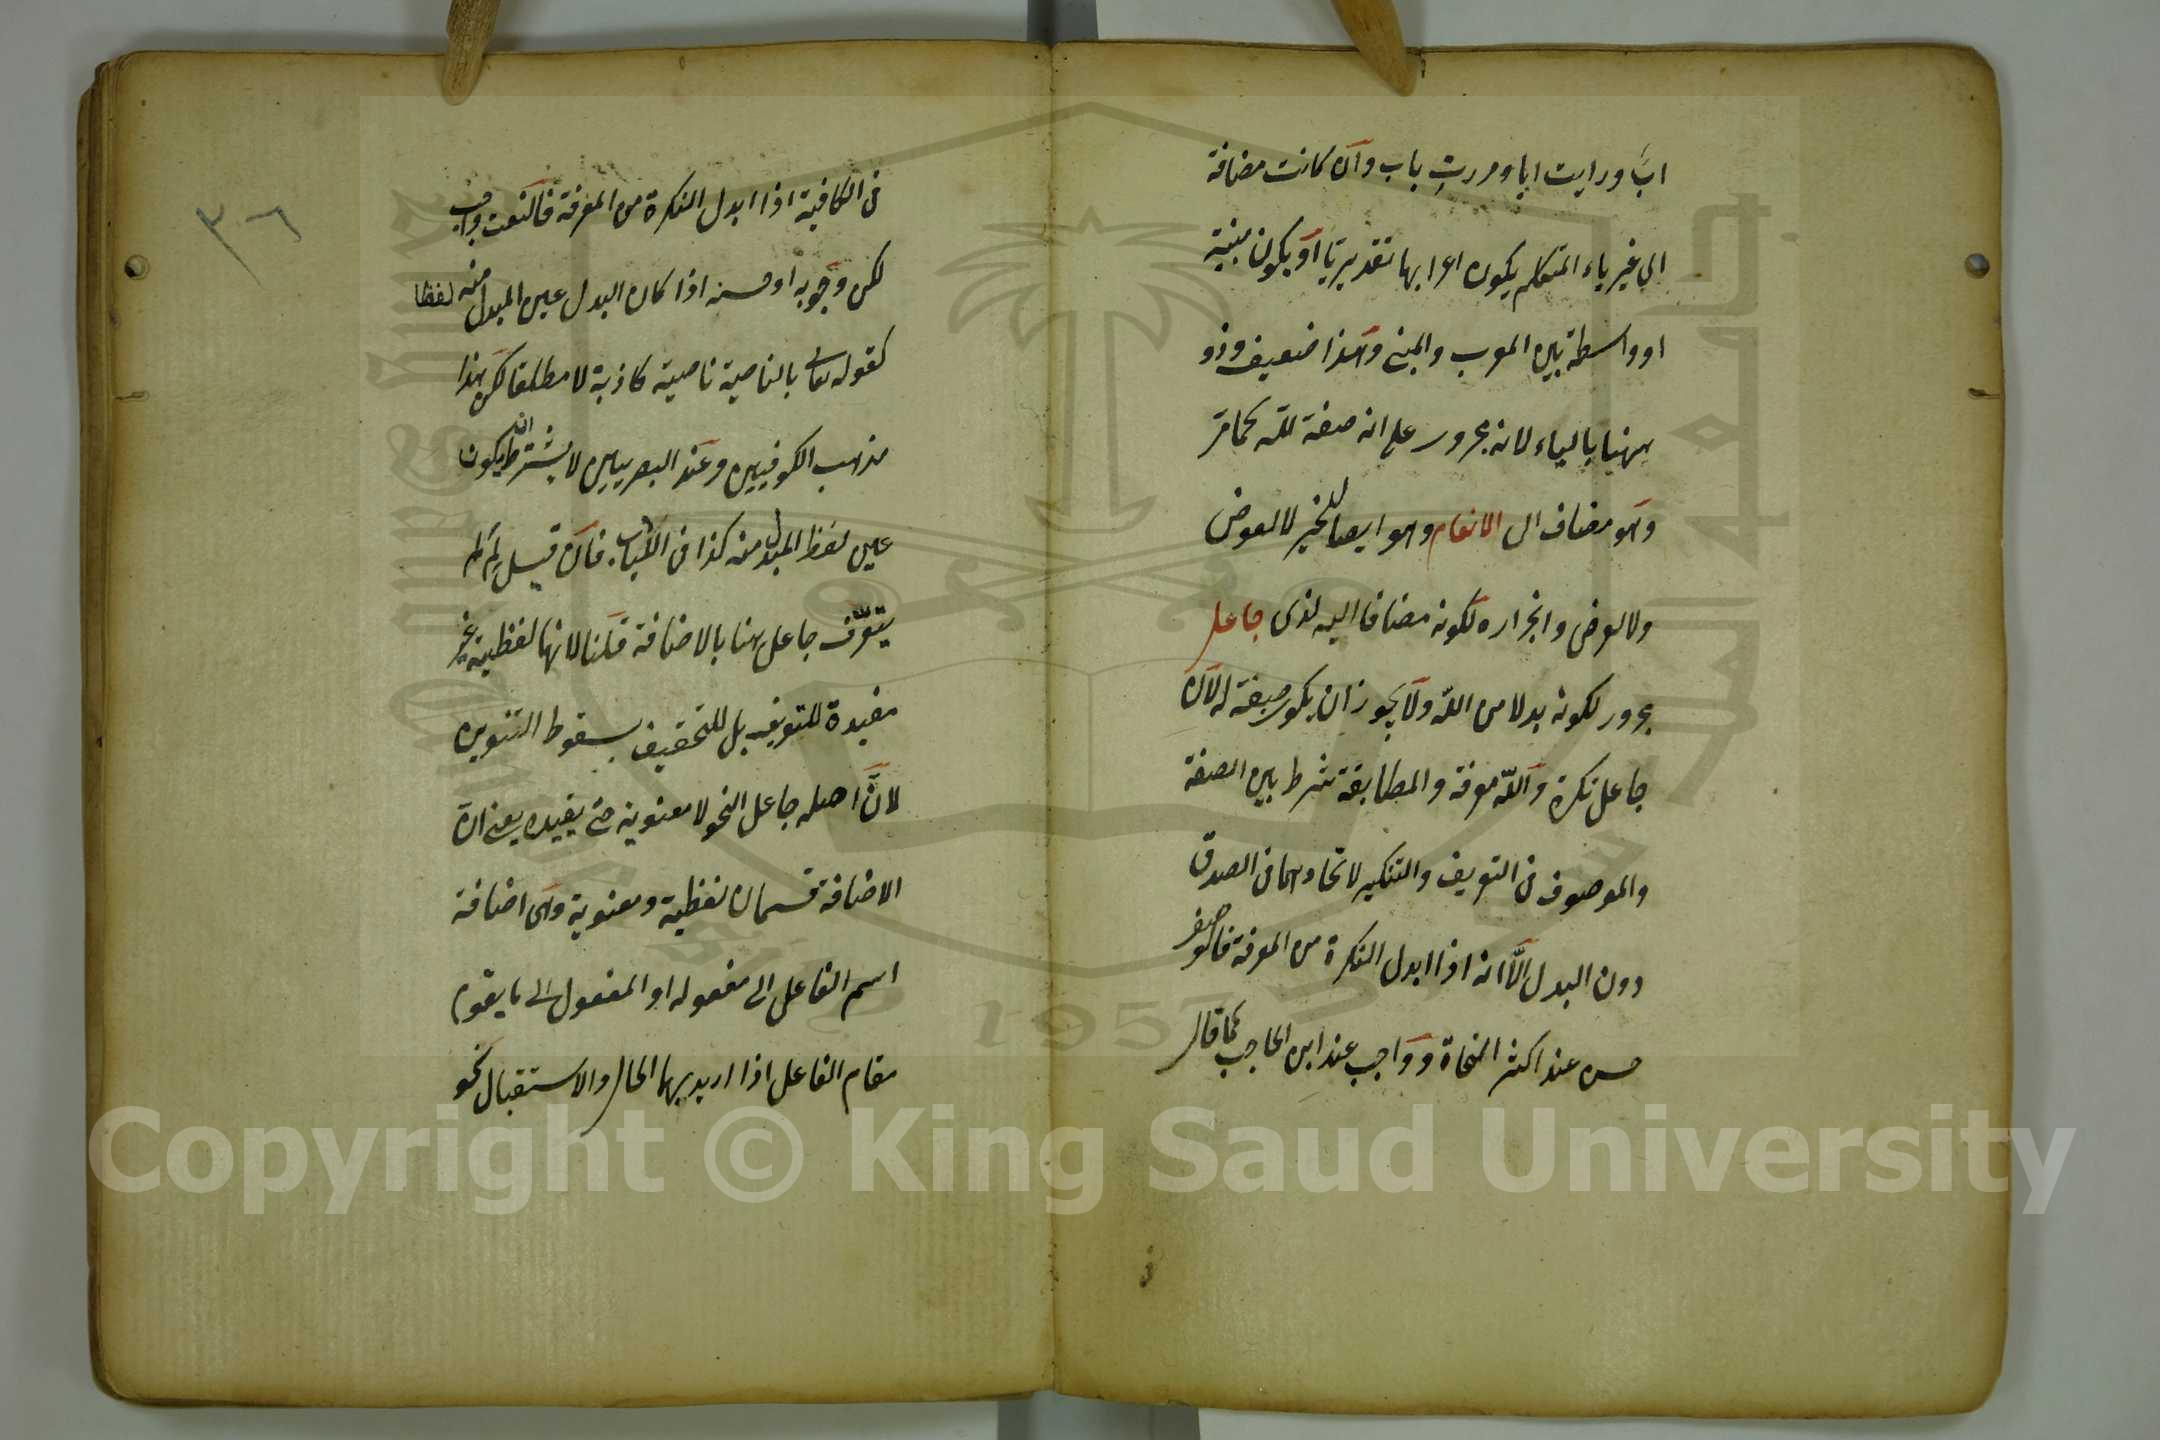 ابٌ ورايت ابا ومررت باب وان كانت مضافة
الى غير ياء المتكلم يكون اعرابها تقديريا او يكون مبنية
او واسطة بين المعرب والمبنى وهذا ضعيف وذو
ههنا بالياء لانه مجرور على انه صفة للّه كما مر
وهو مضاف الى الانعام وهو ايصال الخير لا لعوض
ولا لغرض وانجراره لكونه مضافا اليه لذى جاعل
مجرور لكونه بدلا من اللّه ولا يجوز ان يكون صفة له لان
جاعل نكرة واللّه معرفة والمطابقة شرط بين الصفة
والموصوف فى التعريف والتنكير لاتحادهما فى الصدق
دون البدل الّا انه اذا ابدل النكرة من المعرفة فالوصف
حسن عند اكثر النحاة وواجب عند ابن الحاجب كما قال
فى
٣٦
فى الكافية اذا ابدل النكرة من المعرفة فالنعت واجب
لكن وجوبه او حسنه اذا كان البدل عين المبدل منه لفظا
كقوله تعالى بالناصية ناصية كاذبة لا مطلقا لكن هذا
مذهب الكوفيين وعند البصريين لا يشترط ان يكون
عين لفظ المبدل منه كذا فى اللباب فان قيل لِمَ لم
يتعرّف جاعل هنا بالاضافة قلنا لانها لفظية غير
مفيدة للتعريف بل للتخفيف بسقوط التنوين
لانّ اصله جاعل النحو لا معنوية حتى يفيده يعنى ان
الاضافة قسمان لفظية ومعنوية وهى اضافة
اسم الفاعل الى مفعوله او المفعول الى ما يقوم
مقام الفاعل اذا اريد بهما الحال والاستقبال نحو
Copyright © King Saud University
1957